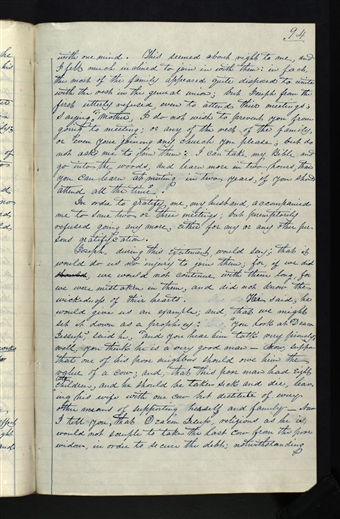 94
with one mind. This seemed about right to me, and
I felt much inclined to join in with them: in fact
the most of the family appeared quite disposed to unite
with the rest in the general union; but Joseph from the
first utterly refused even to attend their meetings,
saying, Mother, I do not wish to prevent you from
going to meeting; or any of the rest of the family,
or even your joining any church you please; but do
not ask me to join them: I can take, my Bible, and
go into the woods, and learn more in two hours, than
you can learn at meeting in two years, if you should
attend all the time.
In order to gratify me, my husband, accompanied
me to some two or three meetings; but peremptorily
refused going any more, either for my or any other per-
sons gratification.
Joseph, during this excitement, would say; that it
would do us no injury to join them; for if we did
we would not continue with them long, for
we were mistaken in them, and did not know the
wickedness of their hearts. He said; he
would give us an example, and, that we might
set it down as a prophecy: You look at Deacon
Jessup; said he, and you hear him talk very piously,
well, you think he is a very good man — Now suppose
that one of his poor neighbors should owe him the
value of a cow; and, that this poor man had eight
children, and he should be taken sick and die, leav-
ing his wife with one cow but destitute of every
other means of supporting herself and family — Now
I tell you, that Deacon Jessup, religious as he is,
would not scruple to take the last cow from the poor
widow, in order to secure the debt; notwithstanding